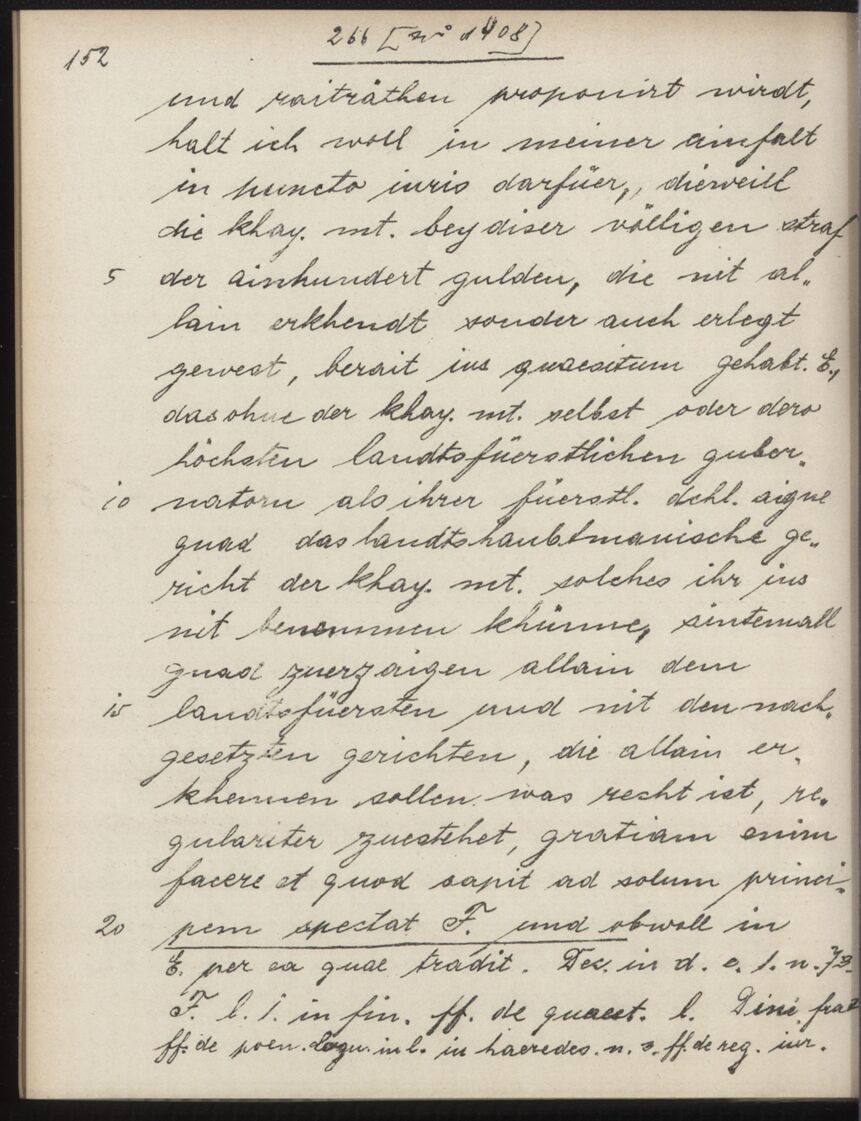 152
266 [Nº 1408]
und raiträthen proponirt wirdt,
halt ich woll in meiner einfalt
in puncto iuris darfüer, dieweill
die khay. mt. bey diser völligen straf
5 der ainhundert gulden, die nit al„
lain erkhendt sonder auch erlegt
gewest, berait ius quaesitum gehabt. E.,
das ohne der khay. mt. selbst oder dero
höchsten landtsfüerstlichen guber„
10 natorn als ihrer füerstl. dchl. aigne
gnad das landtshaubtmanische ge„
richt der khay. mt. solches ihr ius
nit benemmen khünne, sintemall
gnad zuerzaigen allain dem
15 landtsfüersten und nit den nach„
gesetzten gerichten, die allain er„
khennen sollen was recht ist, re„
gulariter zuestehet, gratiam enim
facere et quod sapit ad solum princi„
20 pem spectat F. und obwoll in
E. per ea quae tradit. Dec. in d. c. 1. n.
F. l. 1. in fin. ff. de quaest. l. Divi frat
ff. de poen. in l. in haeredes. n. 3. ff. de reg. iur.